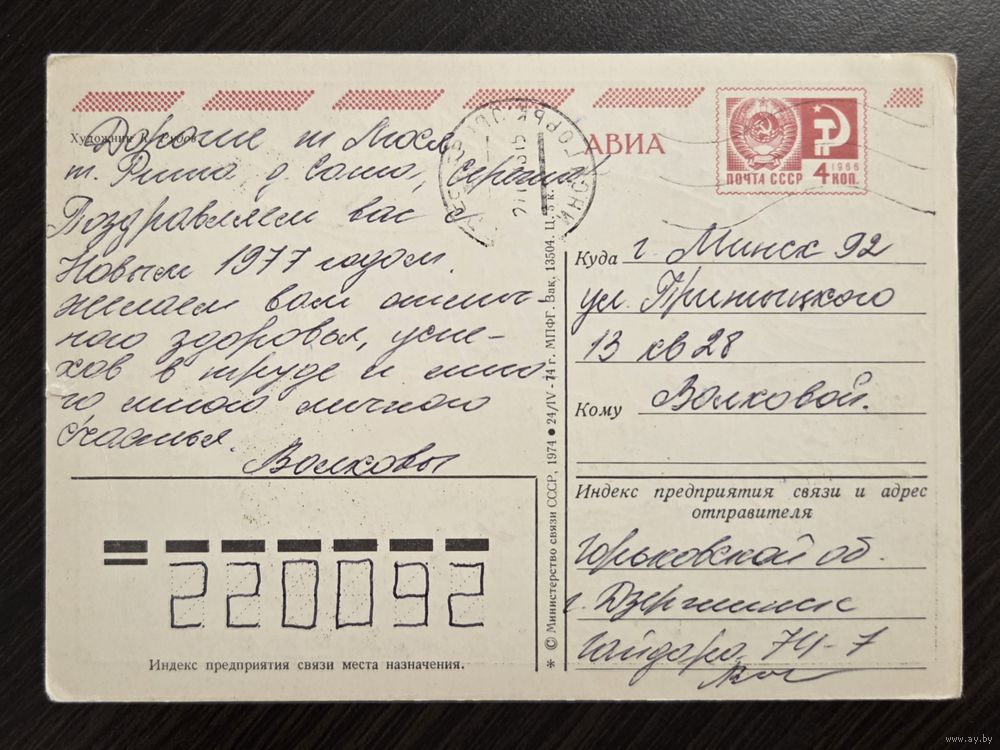 Художник К.
АВИА
ПОЧТА СССР 4 КОП. 1966
Дорогие т Люся
т. Рита д. Саша, Сережа
Поздравляем вас с
Новым 1977 годом.
Желаем вам отлич
ного здоровья, успе-
хов в труде и мно
го много личного
счастья.
Волковы
Куда г. Минск 92
ул. Притыцкого
13 кв 28
Кому Волковой.
Индекс предприятия связи и адрес
отправителя
Горьковской об.
г. Дзержинск
Гайдара 74-7
220092
Индекс предприятия связи места назначения.
* © Министерство связи СССР, 1974 • 24/IV-74 г. МПФГ. Зак. 13504. Ц. 5 к.
www.ay.by